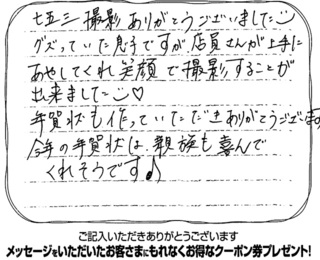 七五三撮影ありがとうございました☺
グズっていた息子ですが店員さんが上手に
あやしてくれ笑顔で撮影することが
出来ました☺♡
年賀状も作っていただきありがとうございます
今年の年賀状は、親族も喜んで
くれそうです♪
ご記入いただきありがとうございます
メッセージをいただいたお客さまにもれなくお得なクーポン券プレゼント!